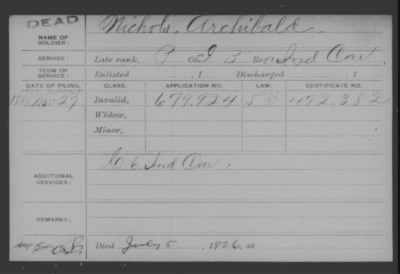 DEAD
NAME OF SOLDIER: Nichols, Archibald
SERVICE: Late rank, P Co. Reg't Ind Cav
TERM OF SERVICE: Enlisted , 1 Discharged , 1
DATE OF FILING. CLASS. APPLICATION NO. LAW. CERTIFICATE NO.
Invalid, 679.924 472.382
Widow,
Minor,
ADDITIONAL SERVICES: Co 6 Ind Cav.
REMARKS:
Died July 5, 1926, at